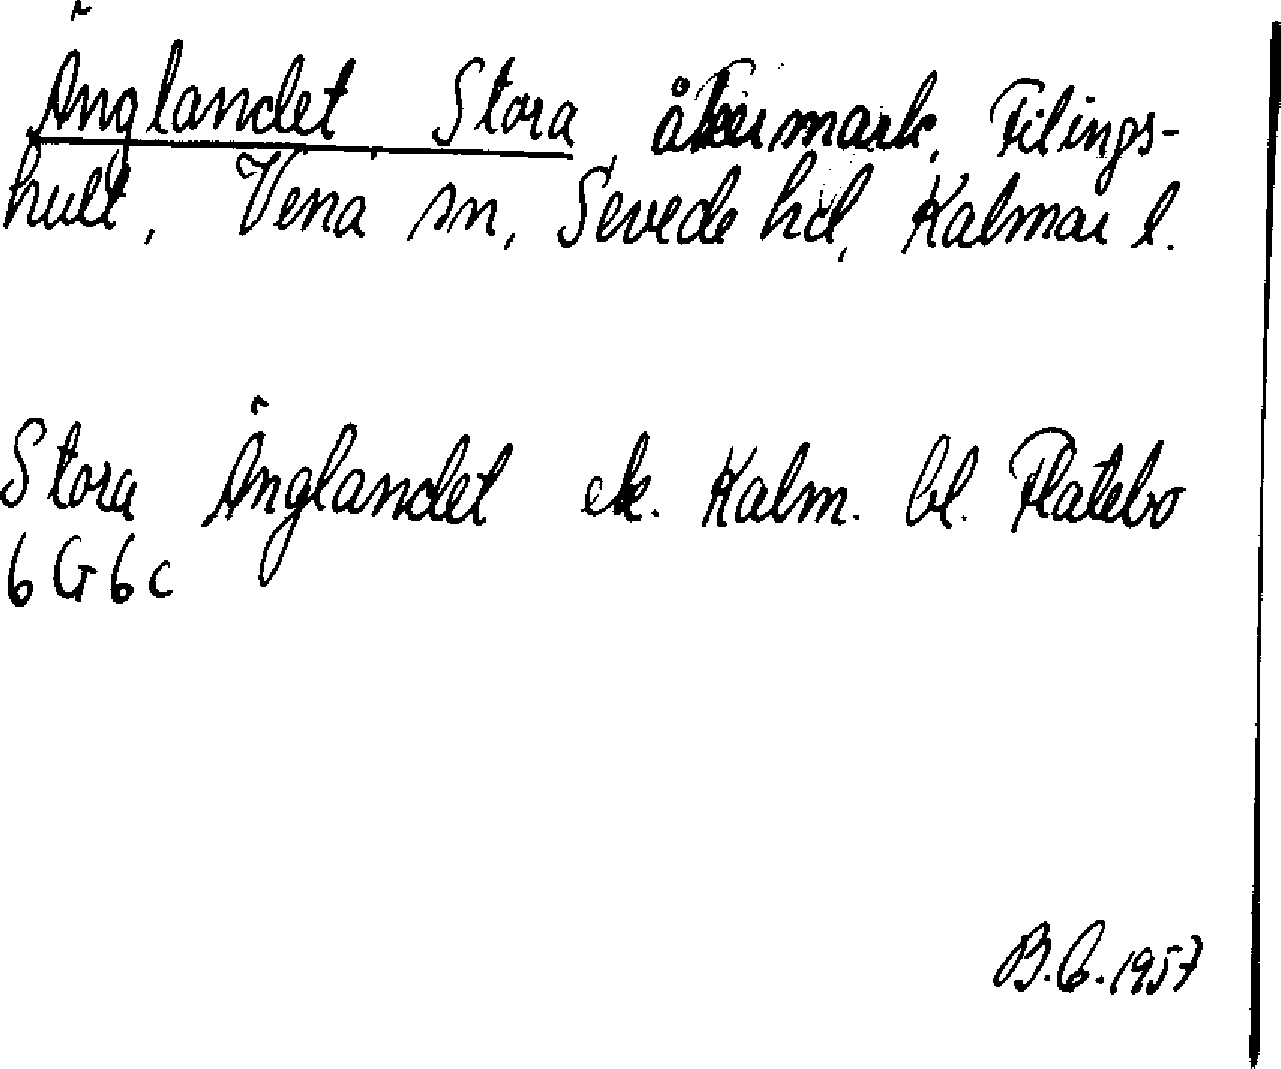 Änglandet, Stora, åkermark, Filings-
hult, Vena sn, Sevede hd, Kalmar l.
Stora Änglandet ek. Kalm. bl. Flatebo
6G6c
B.C. 1957